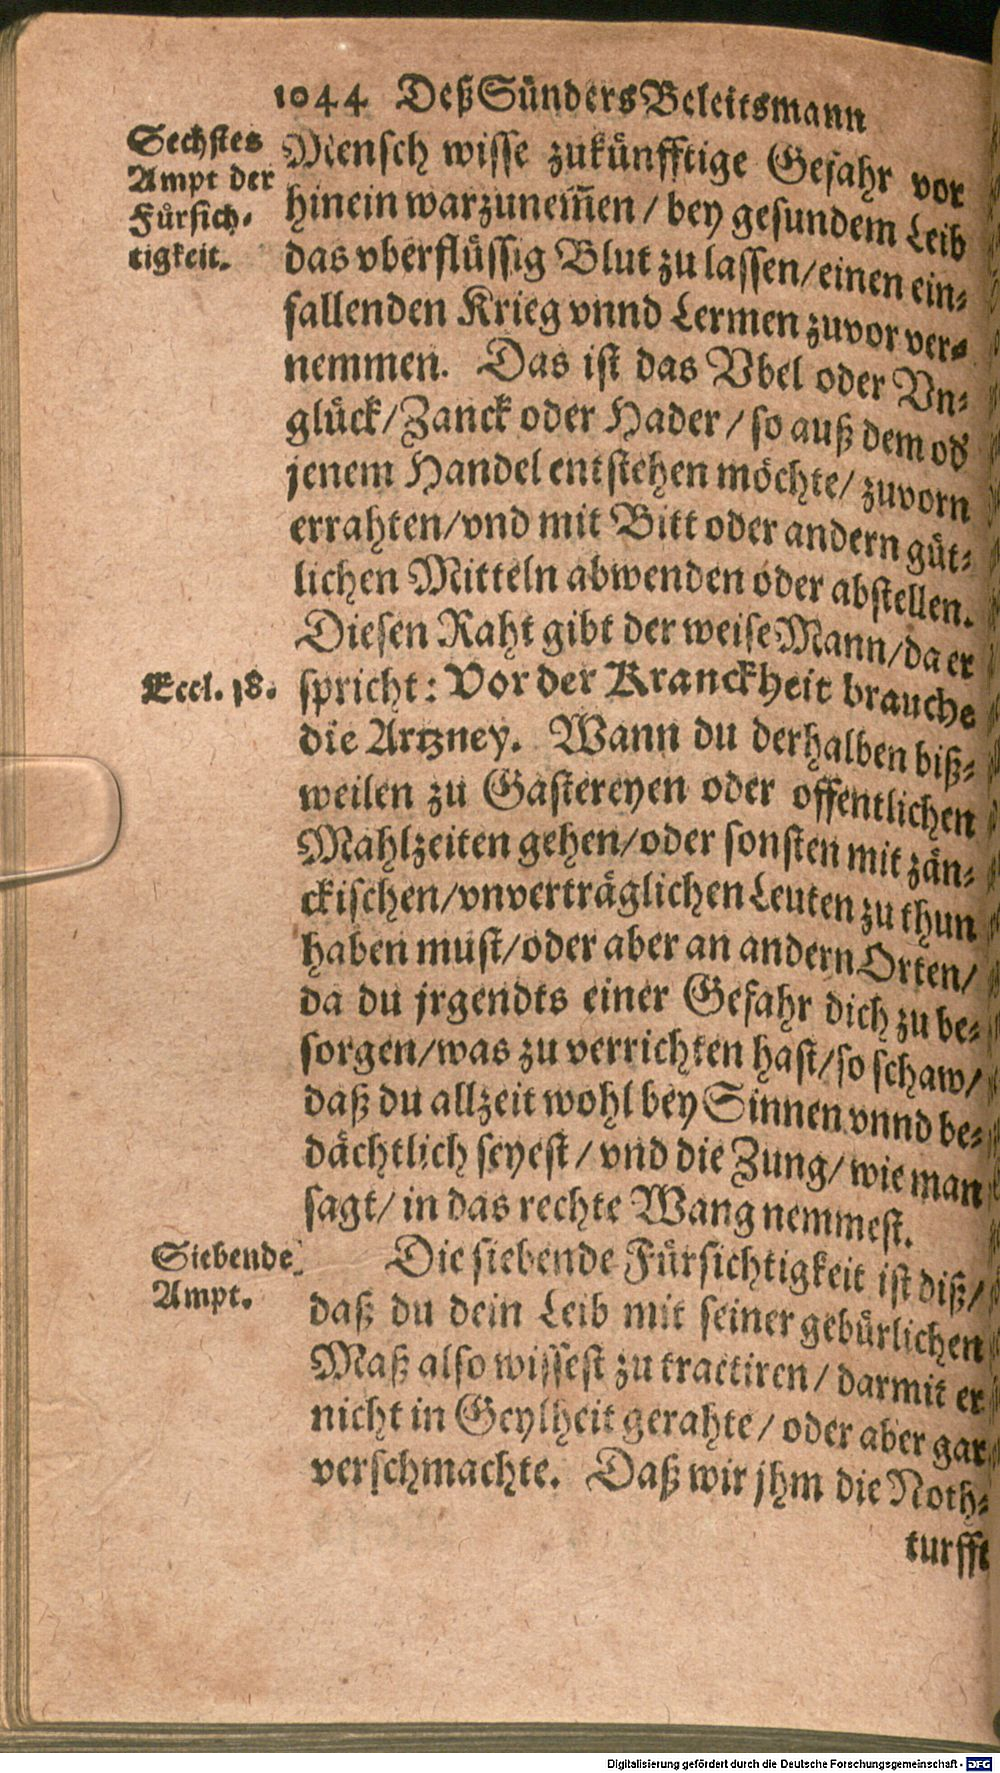 1044 Deß Sünders Beleitsmann
Sechstes
Ampt der
Fürsich-
tigkeit.
Mensch wisse zukünfftige Gefahr vor
hinein warzunem̃en / bey gesundem Leib
das vberflüssig Blut zu lassen / einen ein-
fallenden Krieg vnnd Lermen zuvor ver-
nemmen. Das ist das Vbel oder Vn-
glück / Zanck oder Hader / so auß dem od
jenem Handel entstehen möchte / zuvorn
errahten / vnd mit Bitt oder andern güt-
lichen Mitteln abwenden oder abstellen.
Diesen Raht gibt der weise Mann / da er
Eccl. 18.
spricht: Vor der Kranckheit brauche
die Artzney. Wann du derhalben biß-
weilen zu Gastereyen oder offentlichen
Mahlzeiten gehen / oder sonsten mit zän-
ckischen / vnverträglichen Leuten zu thun
haben must / oder aber an andern Orten /
da du jrgendts einer Gefahr dich zu be-
sorgen / was zu verrichten hast / so schaw /
daß du allzeit wohl bey Sinnen vnnd be-
dächtlich seyest / vnd die Zung / wie man
sagt / in das rechte Wang nemmest.
Siebende
Ampt.
Die siebende Fürsichtigkeit ist diß /
daß du dein Leib mit seiner gebürlichen
Maß also wissest zu tractiren / darmit er
nicht in Geylheit gerahte / oder aber gar
verschmachte. Daß wir jhm die Noth-
turfft
Digitalisierung gefördert durch die Deutsche Forschungsgemeinschaft - DFG